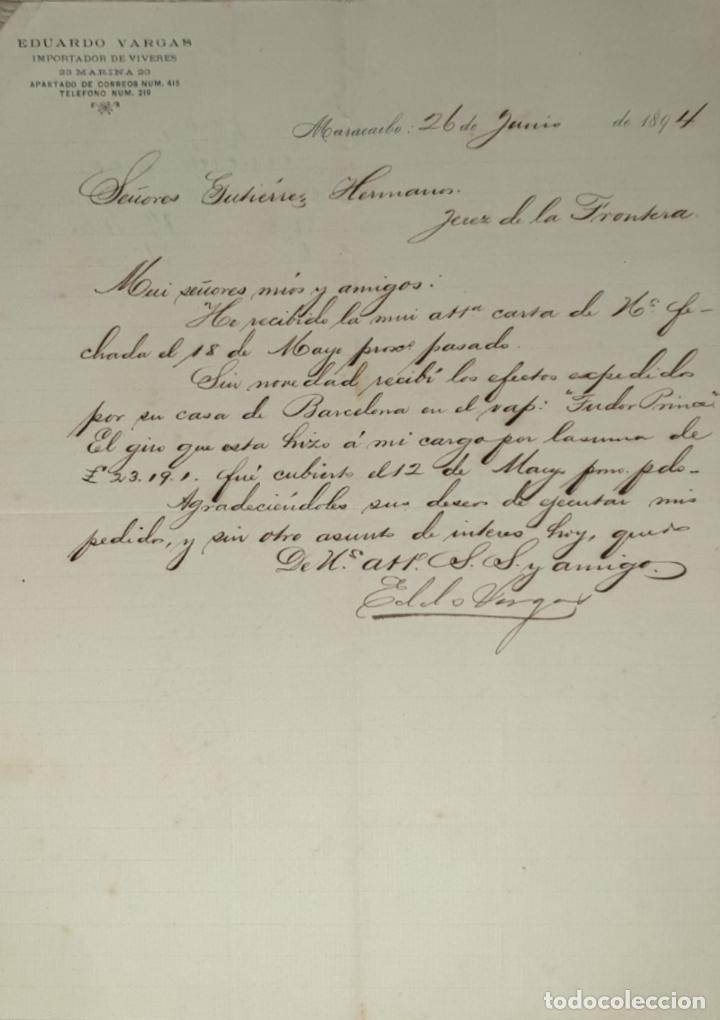 EDUARDO VARGAS
IMPORTADOR DE VIVERES
23 MARINA 23
APARTADO DE CORREOS NUM. 415
TELEFONO NUM. 219
Maracaibo: 26 de Junio de 1894
Señores Gutiérrez Hermanos.
Jerez de la Frontera.
Mui señores mios y amigos:
He recibido la mui attª carta de Us. fe-
chada el 18 de Mayo proxº pasado.
Sin novedad recibí los efectos expedidos
por su casa de Barcelona en el vap: "Tudor Prince".
El giro que esta hizo á mi cargo por la suma de
£ 23.19.1. fué cubierto el 12 de Mayo pmo. pdo.
Agradeciéndoles sus deseos de ejecutar mis
pedidos, y sin otro asunto de interes hoy, quedo
De Us. attº. S. S. y amigo.
Eddo Vargas
todocoleccion